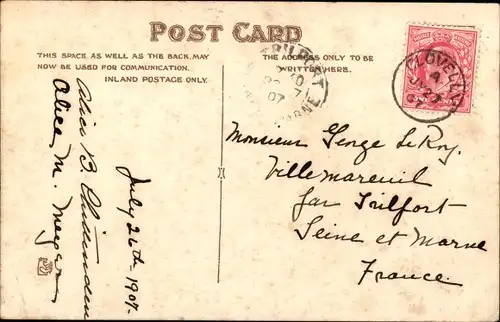 POST CARD
THIS SPACE, AS WELL AS THE BACK, MAY
NOW BE USED FOR COMMUNICATION.
INLAND POSTAGE ONLY.
THE ADDRESS ONLY TO BE
WRITTEN HERE.
Alice B. Chittenden
Alice M. Meyer
July 26th 1907.
TRILPORT
07
MARNE
CLOVELLY
A
Monsieur George Le Roy.
Villemareuil
par Trilfort
Seine et Marne
France.